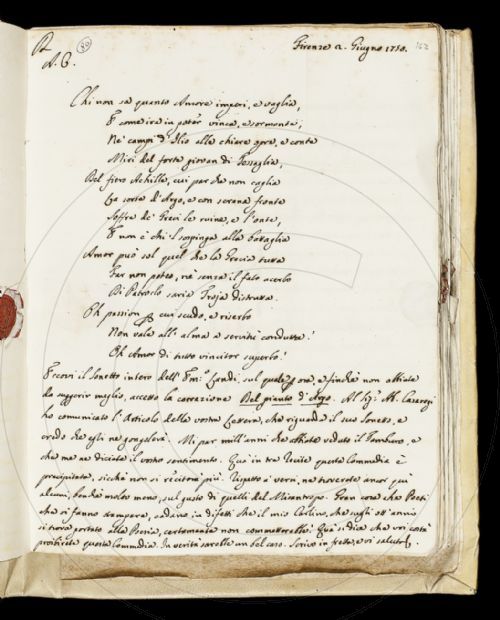 A. B.
80
Firenze 2. Giugno 1750.
162
Chi non sa quanto Amore imperi, e vaglia,
E come ira in poter vinca, e sormonte,
Ne' campi d'Ilio alle chiare opre, e conte
Miri del forte giovan di Tessaglia,
Del fiero Achille, cui par che non caglia
La sorte d'Argo, e con serena fronte
Soffre de' Greci le ruine, e l'onte,
E non è chi 'l sospinga alla battaglia
Amore può sol quel che la Grecia tutta
Far non poteo, né senza il fato acerbo
Di Patroclo saria Troja distrutta.
Oh passion cui scudo, e riserbo
Non vale all'alma a servitù condutta!
Oh Amor di tutto vincitor superbo!
Eccovi il sonetto intero dell' Landi, sul quale ora, e finché non abbiate
da suggerir meglio, accetto la correzione Del pianto d'Argo. Al Sig: Ab. Casaregi
ho comunicato l'articolo della vostra Lettera, che riguarda il suo sonetto, e
credo che egli ne gongolerà. Mi par mill'anni che abbiate veduto il Tamburo, e
che me ne diciate il vostro sentimento. Quà in tre recite questa Commedia è
precipitata, sicché non si reciterà più. Rispetto a' versi, ne troverete ancor quì
alcuni, benché molto meno, sul gusto di quelli del Misantropo. Gran cosa che Poeti
che si fanno stampare, cadano in difetti che il mio Carlino, che sugli ott'anni
si trova portato alla Poesia, certamente non commetterebbe! Quà si dica che voi costà
proibirete questa Commedia. In verità sarebbe un bel caso. Scrivo in fretta, e vi saluto.